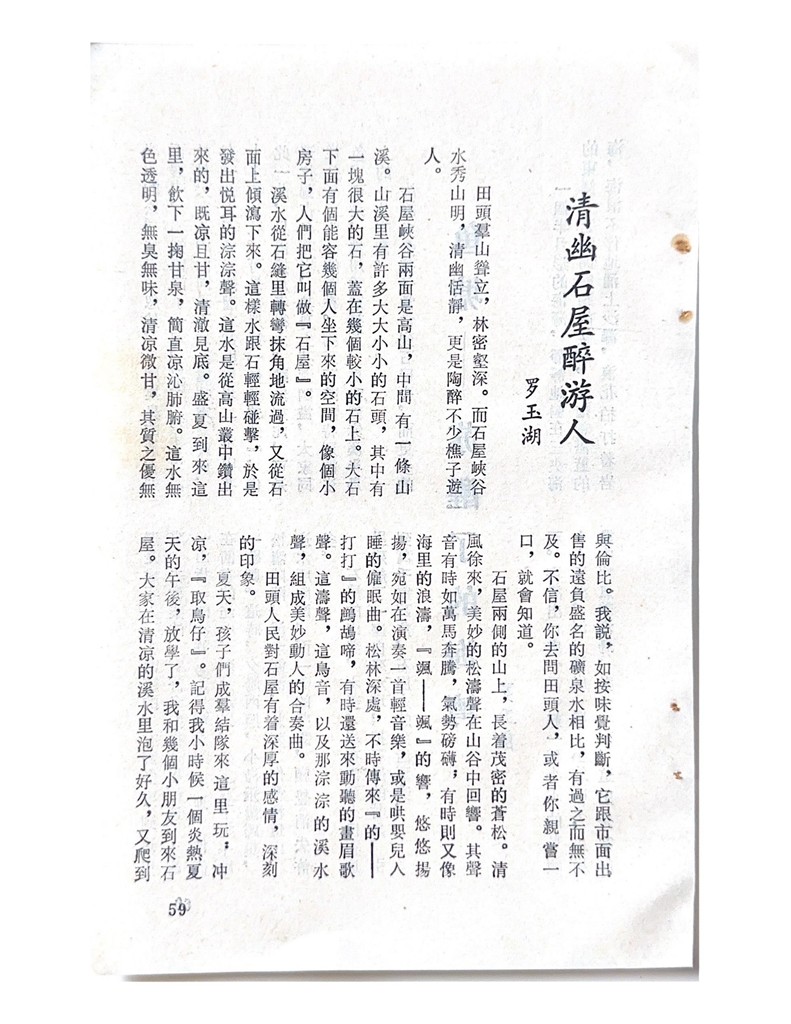 清幽石屋醉游人
罗玉湖
田頭羣山聳立，林密壑深。而石屋峽谷
水秀山明，清幽恬靜，更是陶醉不少樵子遊
人。
石屋峽谷兩面是高山，中間有一條山
溪。山溪里有許多大大小小的石頭，其中有
一塊很大的石，蓋在幾個較小的石上。大石
下面有個能容幾個人坐下來的空間，像個小
房子，人們把它叫做『石屋』。
溪水從石縫里轉彎抹角地流過，又從石
面上傾瀉下來。這樣水跟石輕輕碰擊，於是
發出悦耳的淙淙聲。這水是從高山叢中鑽出
來的，既凉且甘，清澈見底。盛夏到來這
里，飲下一掬甘泉，簡直凉沁肺腑。這水無
色透明，無臭無味，清凉微甘，其質之優無
與倫比。我説，如按味覺判斷，它跟市面出
售的遠負盛名的礦泉水相比，有過之而無不
及。不信，你去問田頭人，或者你親嘗一
口，就會知道。
石屋兩側的山上，長着茂密的蒼松。清
風徐來，美妙的松濤聲在山谷中回響。其聲
音有時如萬馬奔騰，氣勢磅礴，有時則又像
海里的浪濤，『颯——颯』的響，悠悠揚
揚，宛如在演奏一首輕音樂，或是哄嬰兒人
睡的催眠曲。松林深處，不時傳來『的——
打打』的鷓鴣啼，有時還送來動聽的畫眉歌
聲。這濤聲，這鳥音，以及那淙淙的溪水
聲，組成美妙動人的合奏曲。
田頭人民對石屋有着深厚的感情，深刻
的印象。
夏天，孩子們成羣結隊來這里玩，冲
凉，『取鳥仔』。記得我小時候一個炎熱夏
天的午後，放學了，我和幾個小朋友到來石
屋。大家在清凉的溪水里泡了好久，又爬到
59